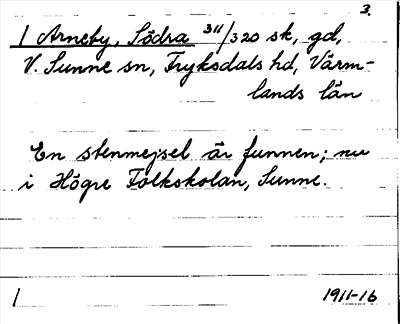 3.
1 Arneby, Södra 311/320 sk, gd,
V. Sunne sn, Fryksdals hd, Värm-
lands län
En stenmejsel är funnen; nu
i Högre Folkskolan, Sunne.
1 1911-16